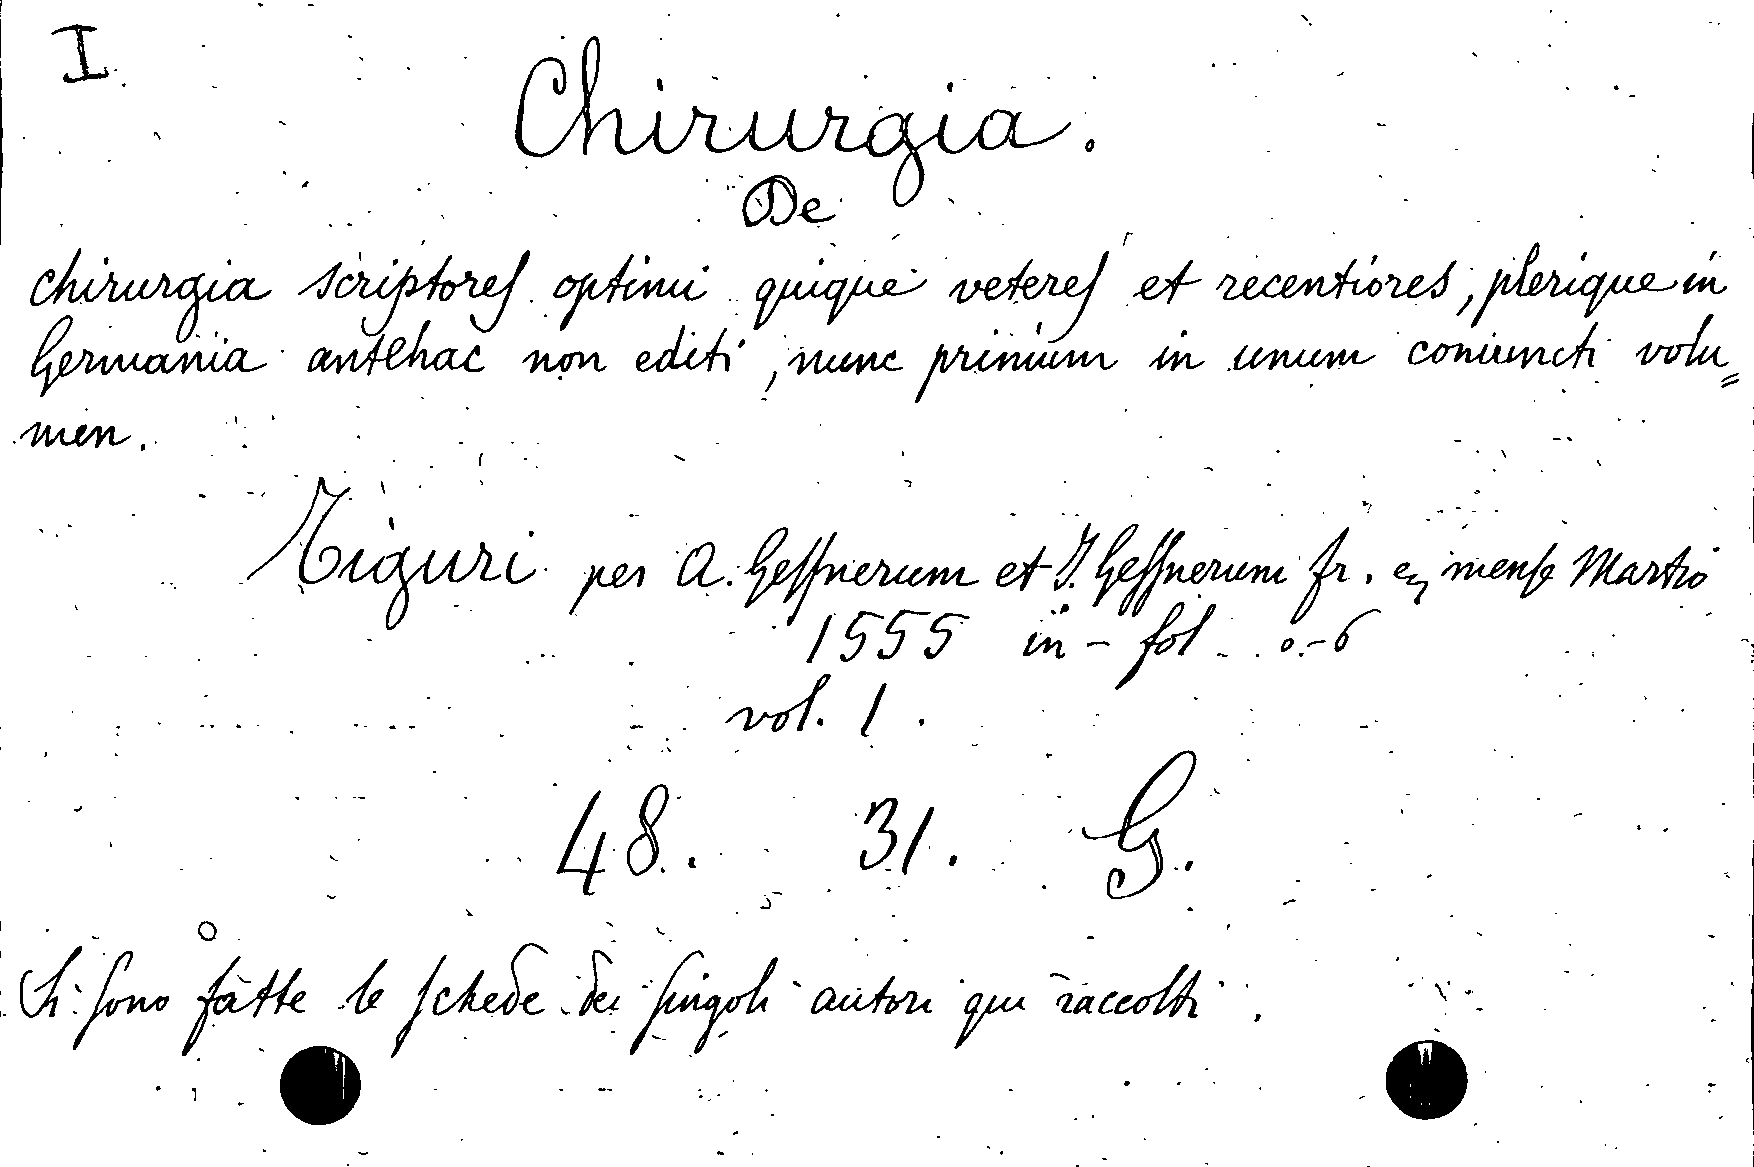 I
Chirurgia.
De
chirurgia scriptores optimi quique veteres et recentiores, plerique in
Germania antehac non editi, nunc primum in unum coniuncti volu=
men.
Tiguri per A. Gessnerum et J. Gessnerum fr. mense Martio
1555 in-fol 0.-6
vol. 1.
48. 31. G.
Si sono fatte le schede dei singoli autori qui raccolti.